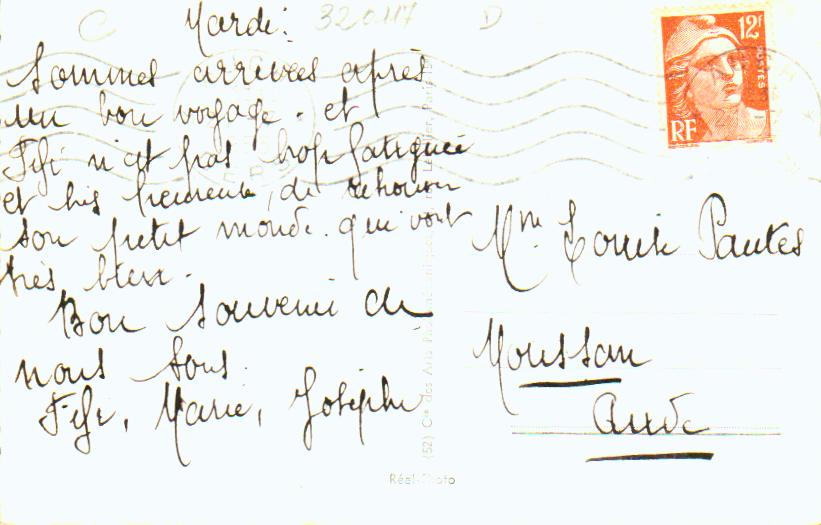 C
320117
D
Mardi:
Sommes arrivées après
un bon voyage. et
Fifi n'est pas trop fatiguée
et très heureuse, de retrouver
son petit monde. qui vont
très bien.
Bon Souvenir de
nous tous.
Fifi, Marie, Joséphe
12f
POSTES
RF
Mme Louise Pautes
Moussan
Aude
(52) Cie des Arts
Réel-Photo